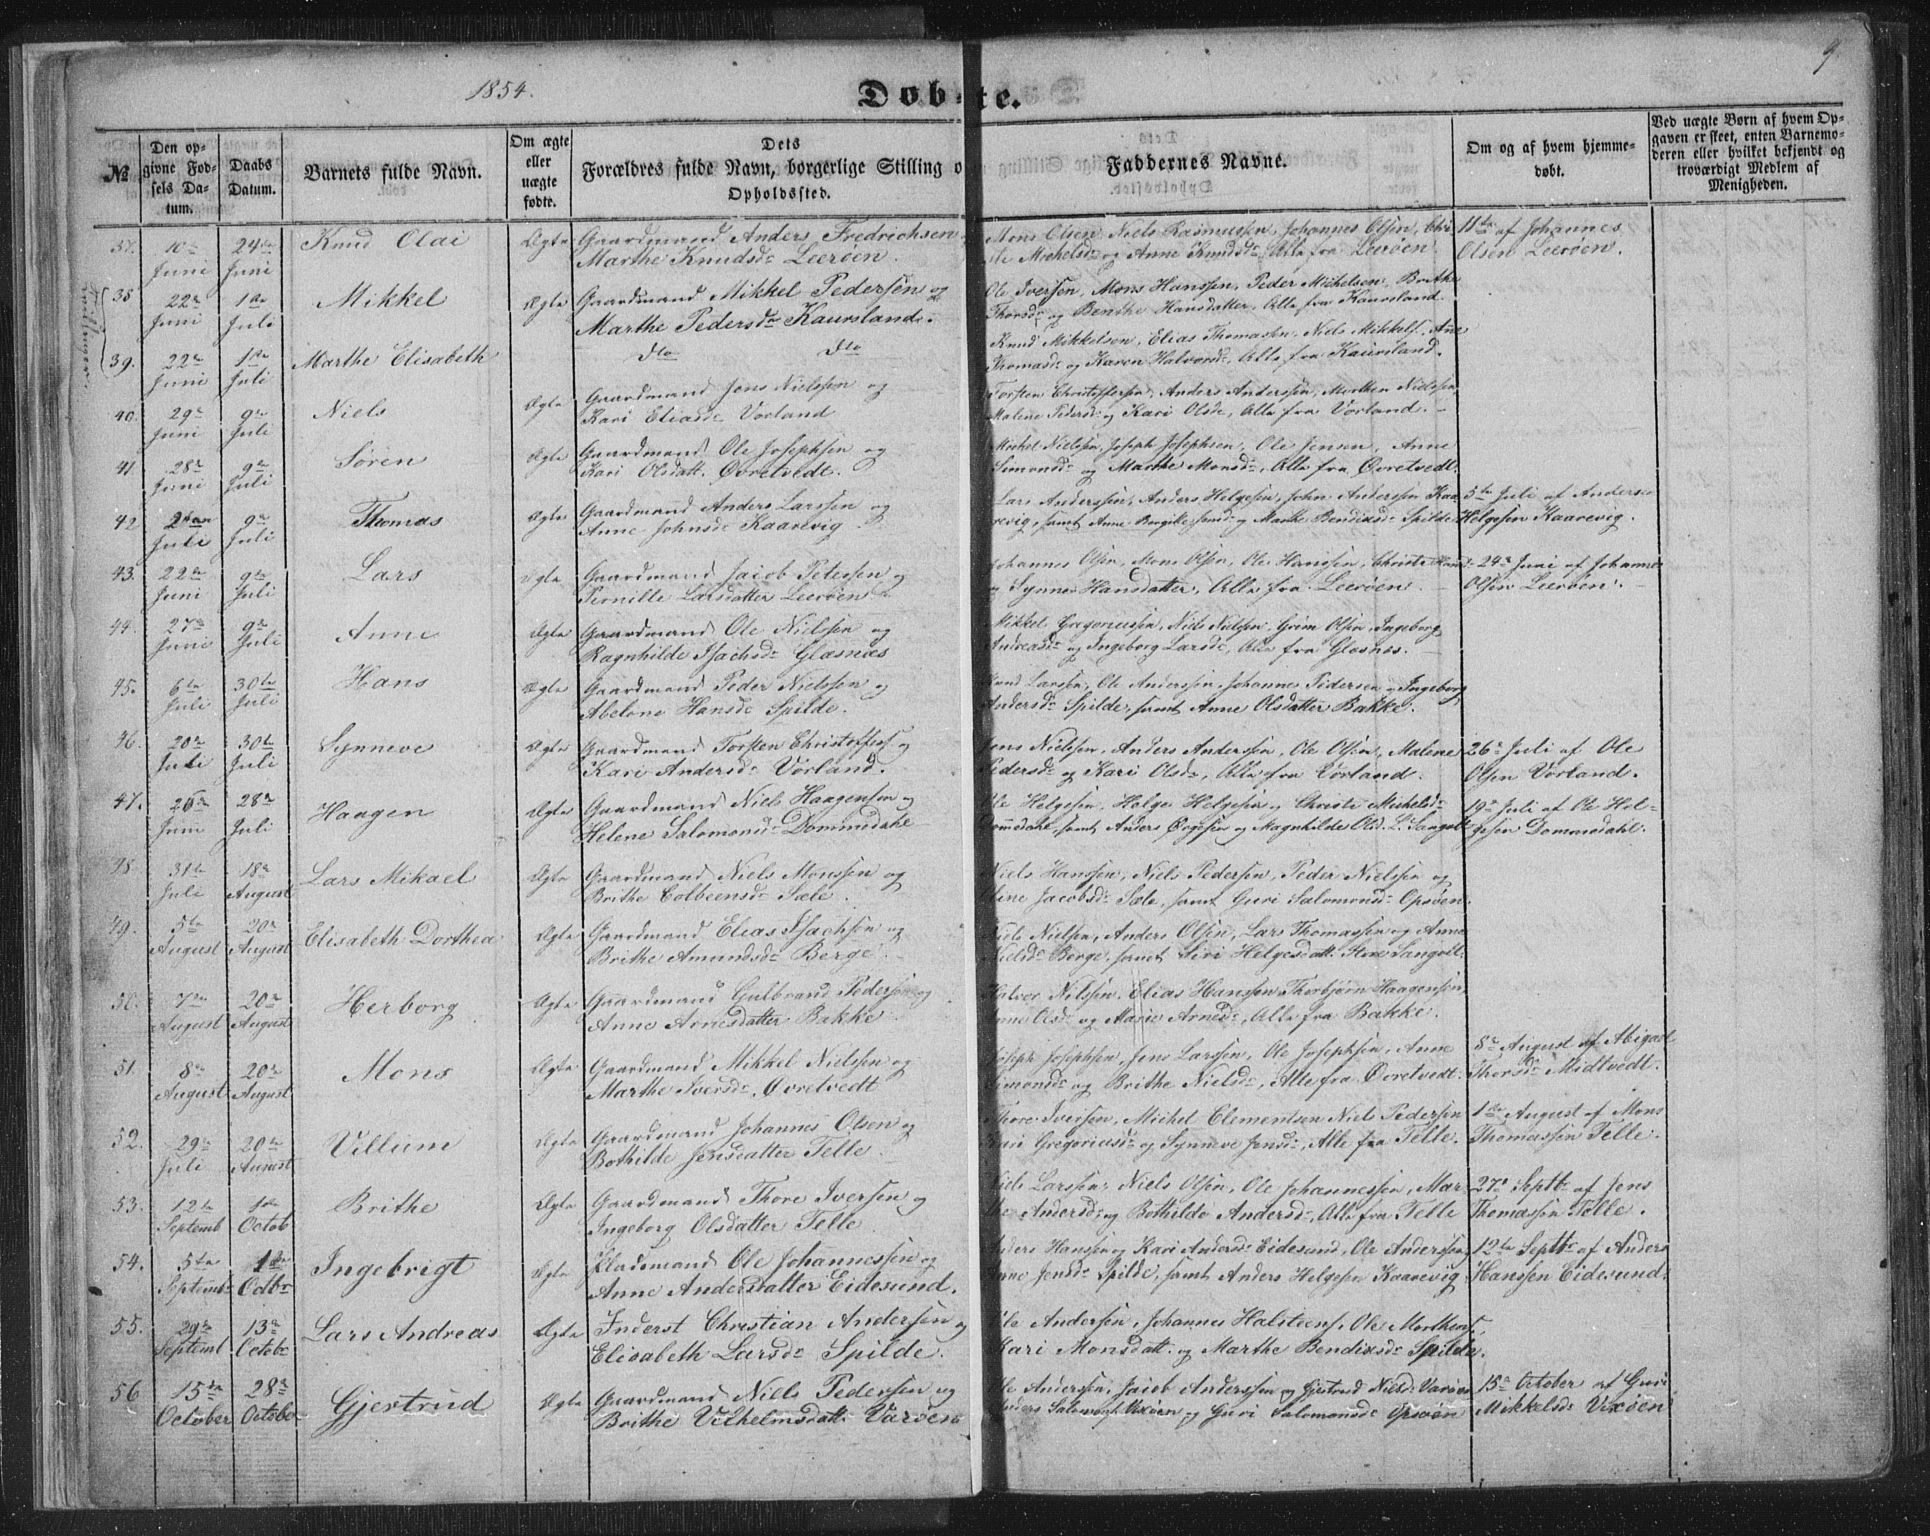 1854.
Døbte.
9.
№
Den opgivne Fødsels Datum.
Daabs Datum.
Barnets fulde Navn.
Om ægte eller uægte fødte.
Dets Forældres fulde Navn, borgerlige Stilling o
Opholdssted.
Faddernes Navne.
Om og af hvem hjemmedøbt.
Ved uægte Børn af hvem Opgaven er skeet, enten Barnemoderen eller hvilket bekjendt og troværdigt Medlem af Menigheden.
37. 10de Juni 24de Juni Knud Olai Ægte Gaardmand Anders Fredrichsen
Marthe Knudsdr Leerøen.
Mons Olsen, Niels Rasmussen, Johannes Olsen,
Michelsdr og Anne Knudsdr, Alle fra Leerøen.
11te af Johannes
Olsen Leerøen.
38 22de Juni 1ste Juli Mikkel Ægte Gaardmand Mikkel Pedersen og
Marthe Pedersdr Kaursland.
Ole Iversen, Mons Hanssen, Peder Michelsen, Brithe
Thorsdr og Benthe Hansdatter, Alle fra Kaursland.
39. 22de Juni 1ste Juli Marthe Elisabeth dto dto
Knud Mikkelsen, Elias Thomasen, Niels Mikkels, Ane
Thomasdr og Karen Halvorsdr, Alle fra Kaursland.
40. 29de Juni 9de Juli Niels Ægte Gaardmand Jens Nielssen og
Kari Eliasdr Vorland
Torsten Christoffersen, Anders Anderssen, Morthen Nielssen,
Malene Pedersdr og Kari Olsdr, Alle fra Vorland.
41. 28de Juni 9de Juli Søren Ægte Gaardmand Ole Josephsen og
Kari Olsdatt. Øvretvedt.
Michel Nielssen, Joseph Josephsen, Ole Jensen, Anne
Simonsdr og Marthe Monsdr, Alle fra Øvretvedt.
42. 2den Juli 9de Juli Thomas Ægte Gaardmand Anders Larssen og
Anne Johnsdr Kaarevig
Lars Anderssen, Anders Helgesen, John Anderssen Kaa
revig, samt Anne og Marthe Bendixsdr Spilde
5te Juli af Anders
Helgesen Kaarevig.
43. 22de Juni 9de Juli Lars Ægte Gaardmand Jacob Peterssen og
Pernille Larsdatter Leerøen
Johannes Olsen, Mons Olsen, Ole Hanssen,
og Synneve Hansdatter, Alle fra Leerøen.
24de Juni af Johannes
Olsen Leerøen.
44. 27de Juni 9de Juli Anne Ægte Gaardmand Ole Nielssen og
Ragnhilde Isachsdr Glæsnæs
Mikkel Gregoriussen, Niels Nielssen, Grim Olsen, Ingeborg
Andreasdr og Ingeborg Larsdr, Alle fra Glæsnes.
45. 6te Juli 30te Juli Hans Ægte Gaardmand Peder Nielssen og
Abelone Hansdr Spilde.
Knud Larssen, Ole Anderssen, Johannes Pedersen og Ingeborg
Andersdr Spilde, samt Anne Olsdatter Bakke.
46. 20de Juli 30te Juli Synneve Ægte Gaardmand Torsten Christoffers og
Kari Andersdr Vorland.
Jens Nielssen, Anders Anderssen, Ole Olsen, Malene
Pedersdr og Kari Olsdr, Alle fra Vorland.
26de Juli af Ole
Olsen Vorland.
47. 26de Juni 28de Juli Haagen Ægte Gaardmand Niels Haagensen og
Helene Salomonsdr Dommedahl
Ole Helgesen, Helge Helgesen og Christi Michelsdr
Dommedahl, samt Anders og Magnhilde Olsd. L. Sangolt
19de Juli af Ole Hel-
gesen Dommedahl.
48. 31te Juli 18de August Lars Mikael Ægte Gaardmand Niels Monssen og
Brithe Colbeensdr Sæle.
Niels Hanssen, Niels Pedersen, Peder Nielssen og
Jacobsdr Sæle, samt Guri Salomonsdr Opsøen.
49. 5te August 20de August Elisabeth Dorthea Ægte Gaardmand Elias Isachsen og
Brithe Amundsdr Berge
Niels Nielsen, Anders Olsen, Lars Thomassen og Anne
Nielsdr Berge, samt Siri Helgesdatt. Store Sangolt.
50. 7de August 20de August Herborg Ægte Gaardmand Gulbrand Pedersen og
Anne Arnesdatter Bakke.
Halvor Nilssen, Elias Hanssen, Thorbjørn Haagensen,
Anne Olsdr og Marie Arnesdr, Alle fra Bakke.
51. 8de August 20de August Mons Ægte Gaardmand Mikkel Nielssen og
Marthe Iversdr, Øvretvedt
Joseph Josephsen, Jens Larssen, Ole Josephsen, Anne
Simonsdr og Brithe Nielsdr, Alle fra Øvretvedt.
8de August af Abigael
Thorsdr Midtvedt.
52. 29de Juli 20de August Villum Ægte Gaardmand Johannes Olsen og
Bothilde Jensdatter Telle
Thore Iversen, Michel Clementsen, Niels Pedersen
Kari Gregoriusdr og Synneve Jensdr, Alle fra Telle.
1ste August af Mons
Thomassen Telle.
53. 12te Septemb 1ste Octob Brithe Ægte Gaardmand Thore Iversen og
Ingeborg Olsdatter Telle
Niels Larssen, Niels Olsen, Ole Johannessen, Mar
the Andersdr og Bothilde Andersdr, Alle fra Telle
27de Septbr af Jens
Thomassen Telle.
54. 5te Septembr 1ste Octbr Ingebrigt Ægte Pladsmand Ole Johannessen og
Anne Andersdatter Eidesund.
Anders Hansen og Kari Andersdr Eidesund, Ole Anderssen,
Anne Jensdr Spilde, samt Anders Helgesen Kaarevig
12te Septbr af Anders
Hanssen Eidesund.
55. 29de Septembr 13de Octobr Lars Andreas Ægte Inderst Christian Andersen og
Elisabeth Larsdr Spilde.
Ole Andersen, Johannes Halsteens, Ole Morthens,
Kari Monsdatt. og Marthe Bendixsdr Spilde.
56 15de October 28de October Gjertrud Ægte Gaardmand Niels Pedersen og
Brithe Vilhelmsdatt. Varøen
Ole Anderssen, Jacob Anderssen og Gjertrud Nielsdr Varøen
Anders Salomons Vixøen og Guri Salomonsdr Opsøen
15de October af Guri
Mikkelsdr Vixøen